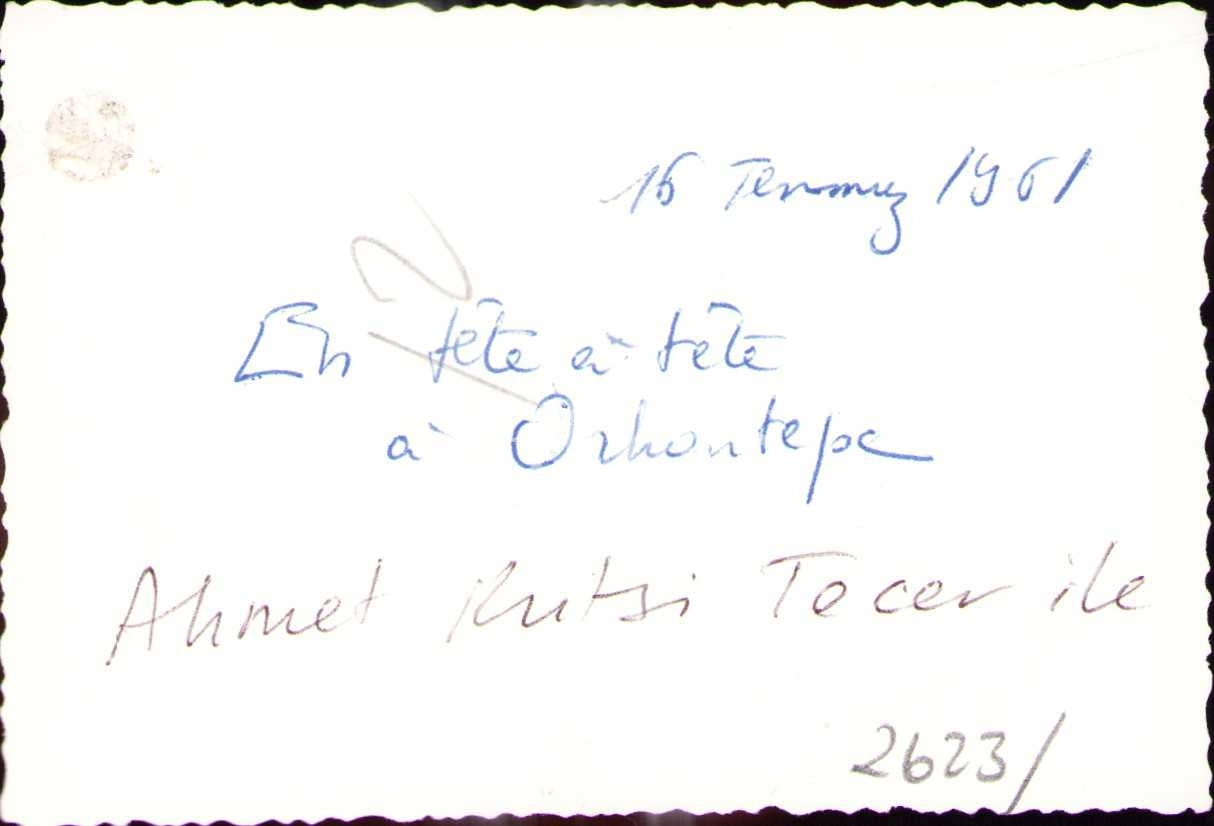 16 Temmuz 1961
En tête à tête
à Orhantepe
Ahmet Kutsi Tecer ile
2623/